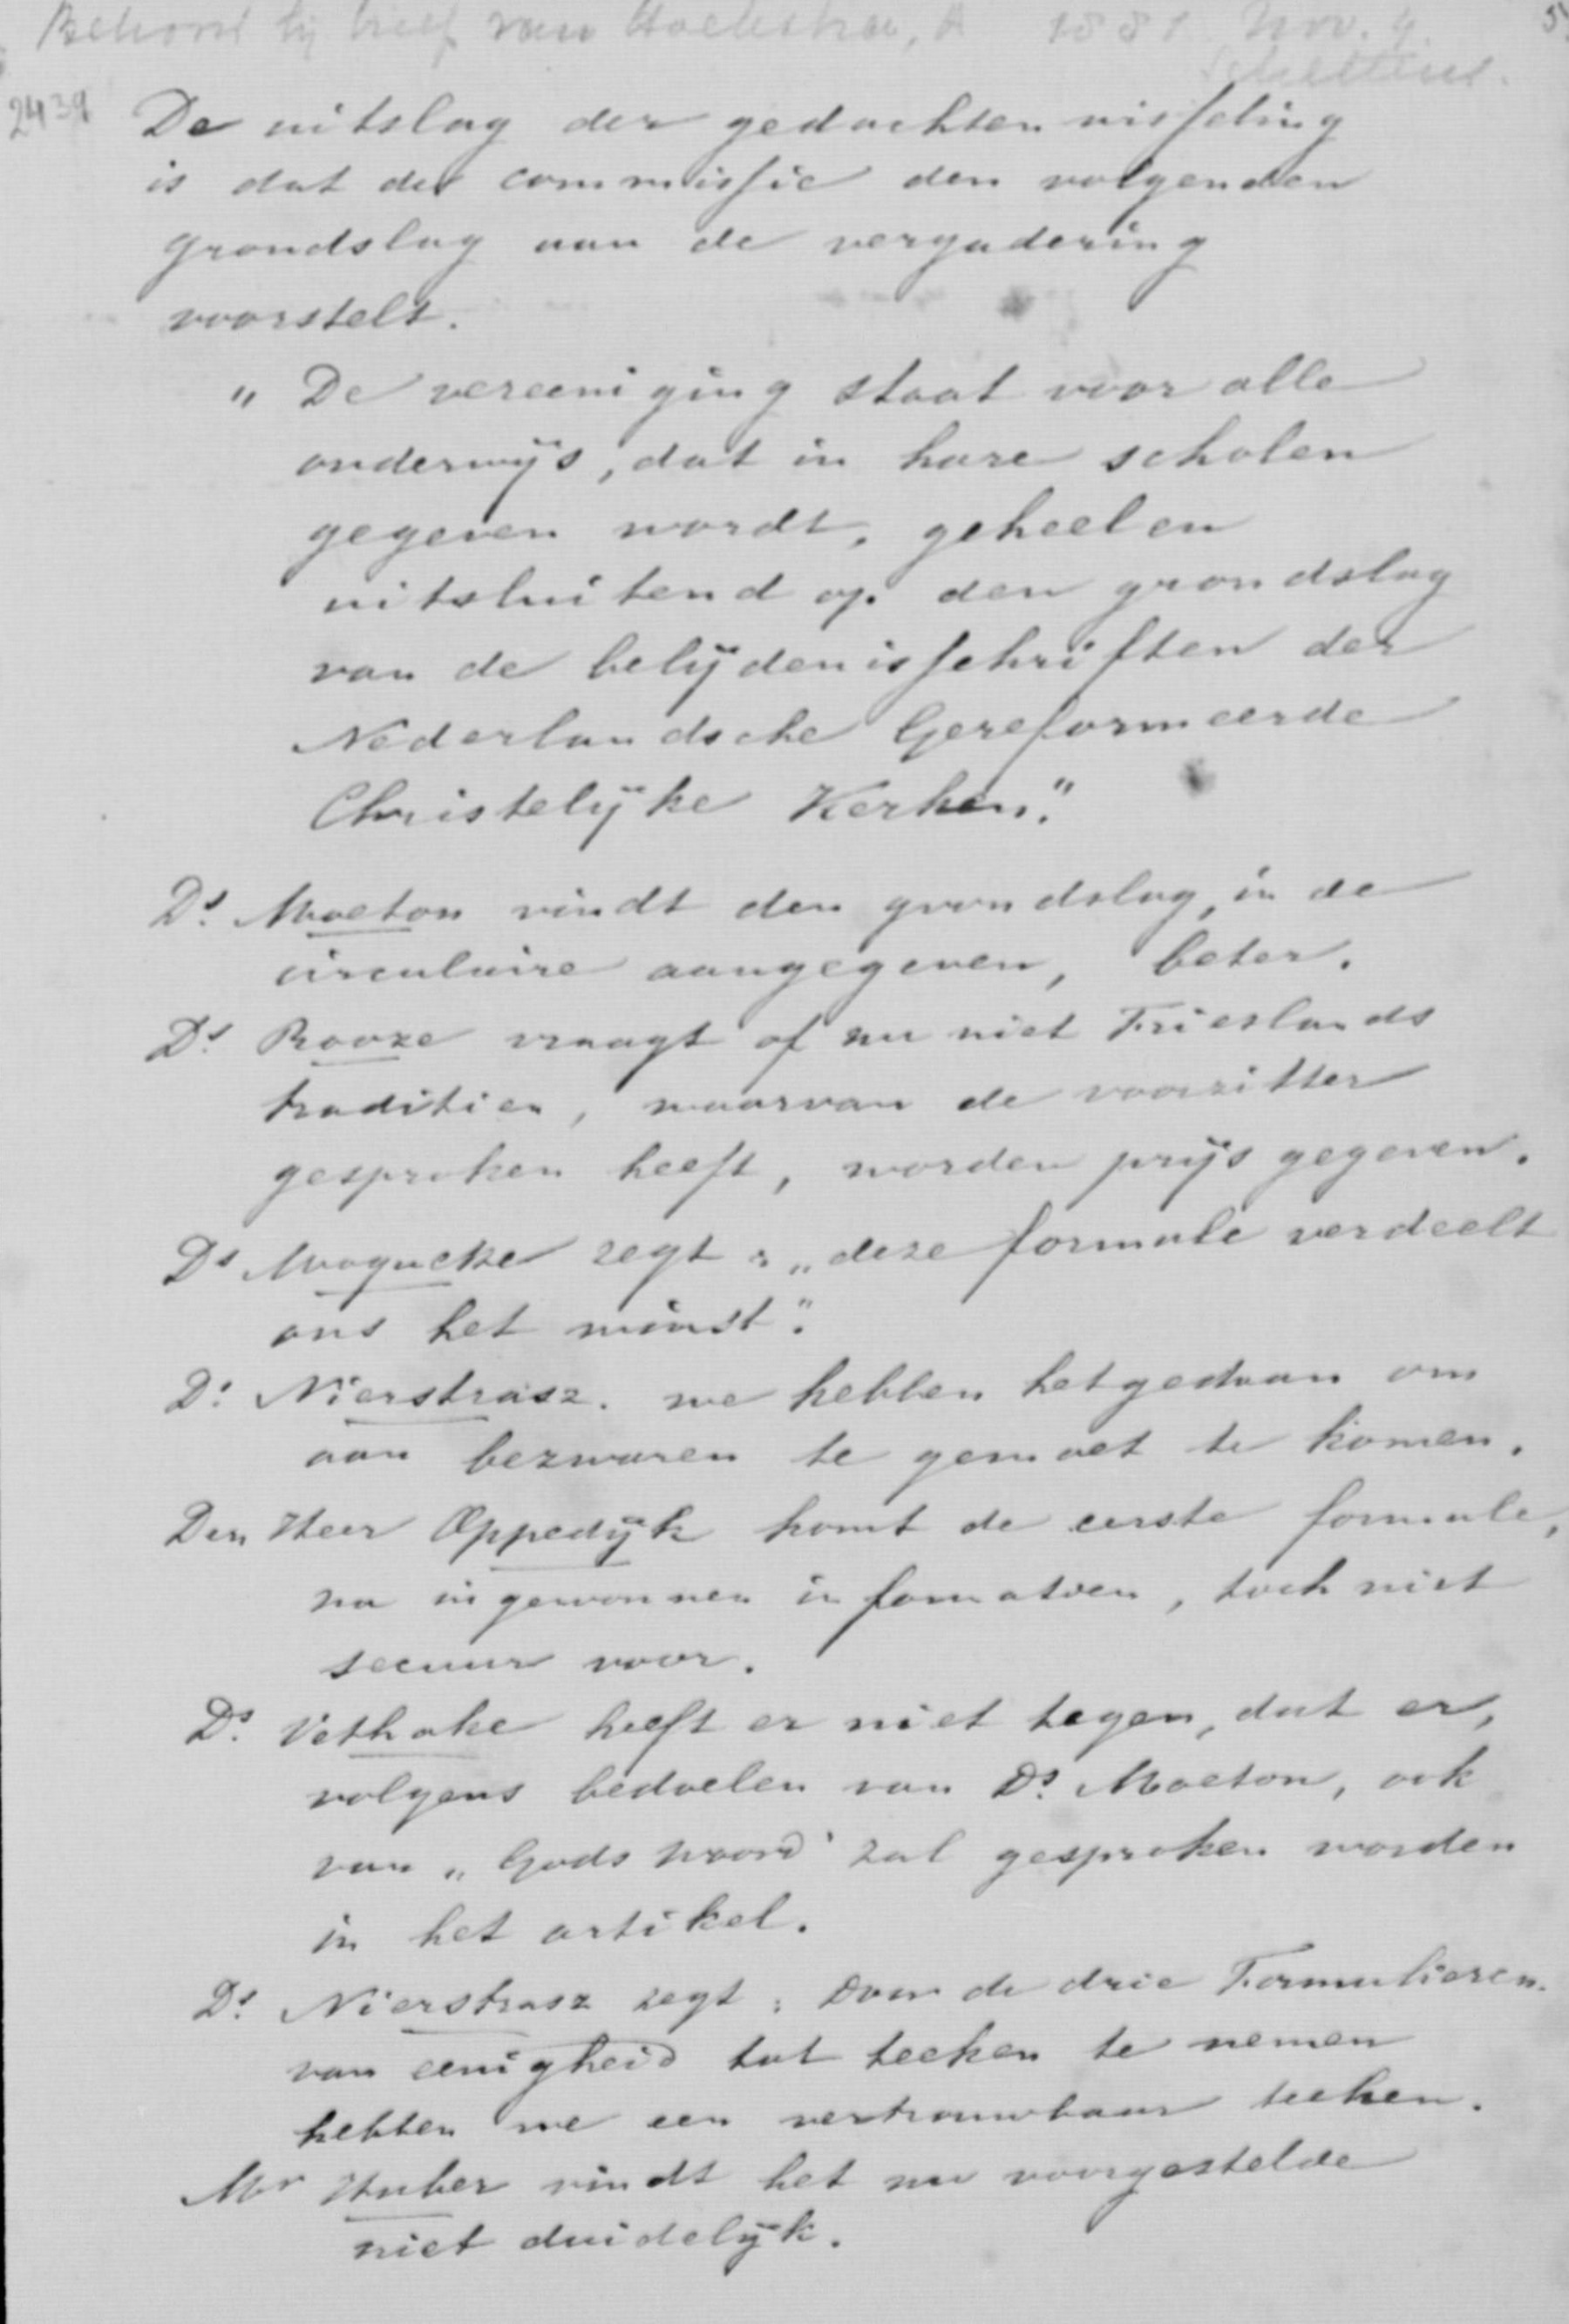 Behoort bij brief van Hoekstra, A 1881 Nov. 4. 5
2439
De uitslag der gedachtenwisseling
is dat de commissie den volgenden
grondslag aan de vergadering
voorstelt.
„ De vereeniging staat voor alle
onderwijs, dat in hare scholen
gegeven wordt, geheel en
uitsluitend op den grondslag
van de belijdenisschriften der
Nederlandsche Gereformeerde
Christelijke Kerken."
Ds. Moeton vindt den grondslag, in de
circulaire aangegeven, beter.
Ds. Rooze vraagt of nu niet Frieslands
traditien, waarvan de voorzitter
gesproken heeft, worden prijs gegeven.
Ds Moquette zegt: „deze formule verdeelt
ons het minst".
Ds. Nierstrasz. we hebben het gedaan om
aan bezwaren te gemoet te komen.
Den Heer Oppedijk komt de eerste formule,
na ingewonnen informatien, toch niet
secuur voor.
Ds. Vethake heeft er niet tegen, dat er,
volgens bedoelen van Ds. Moeton, ook
van „Gods woord" zal gesproken worden
in het artikel.
Ds. Nierstrasz zegt: Door de drie Formulieren
van eenigheid tot teeken te nemen
hebben we een vertrouwbaar teeken.
Mr Huber vindt het nu voorgestelde
niet duidelijk.